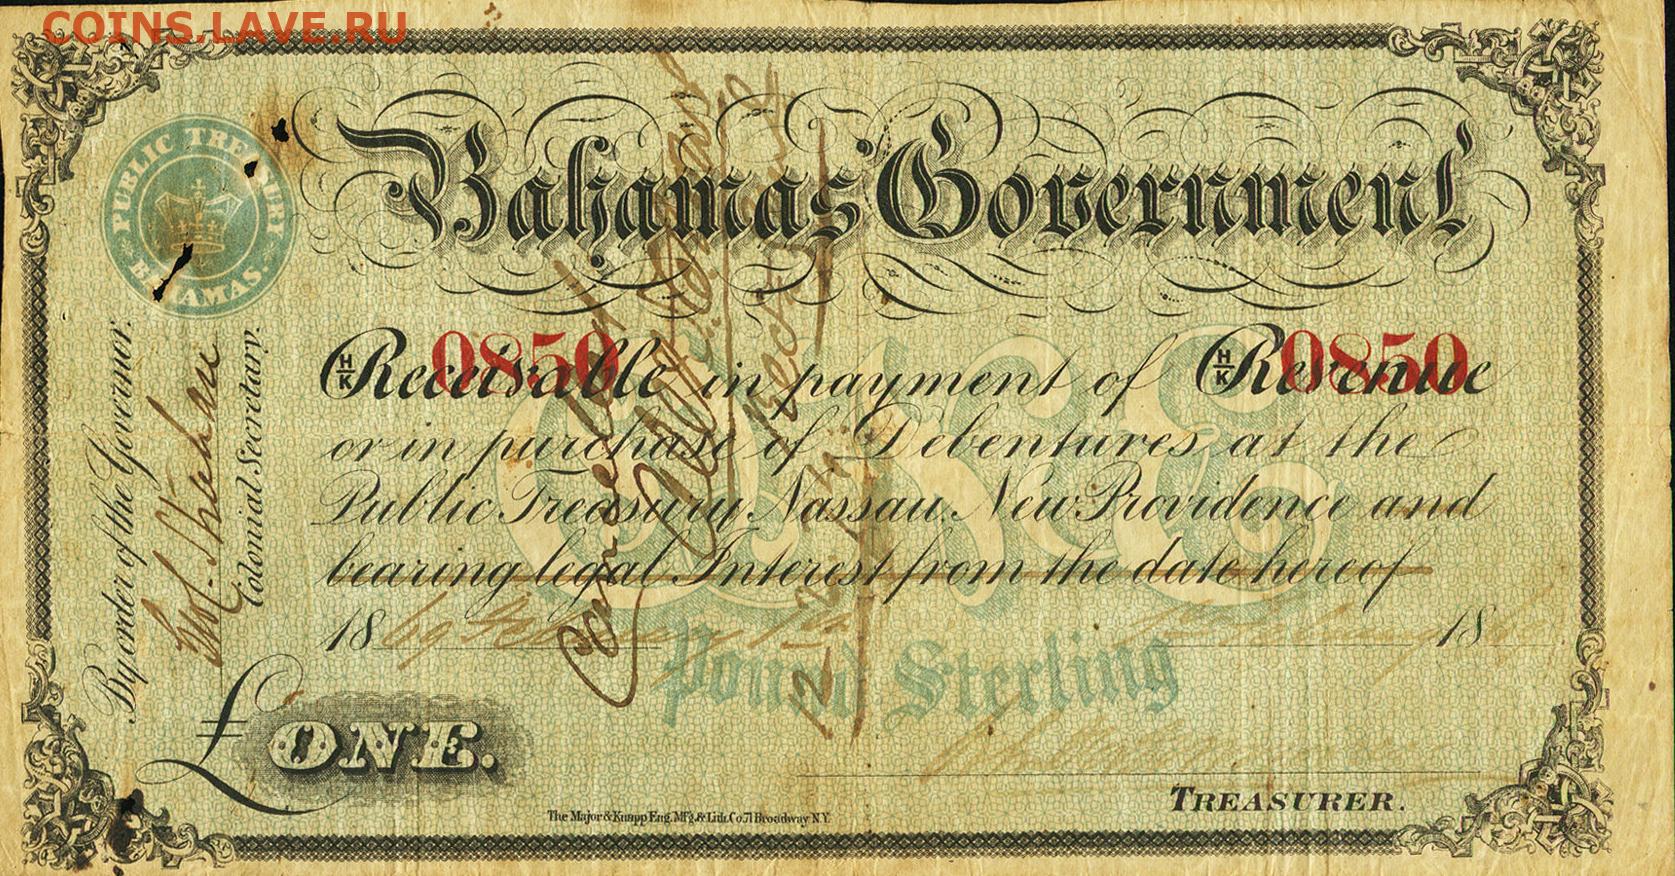 COINS.LAVE.RU
PUBLIC TREASURY
BAHAMAS.
Bahamas Government
H/K 0850 H/K 0850
Receivable in payment of Revenue
or in purchase of Debentures at the
Public Treasury, Nassau, New Providence and
bearing legal Interest from the date hereof
18 69 February 18
ONE
Pound Sterling
£ ONE.
TREASURER.
The Major & Knapp Eng. Mfg. & Lith. Co. 71 Broadway N.Y.
By order of the Governor.
Colonial Secretary.
Cancelled